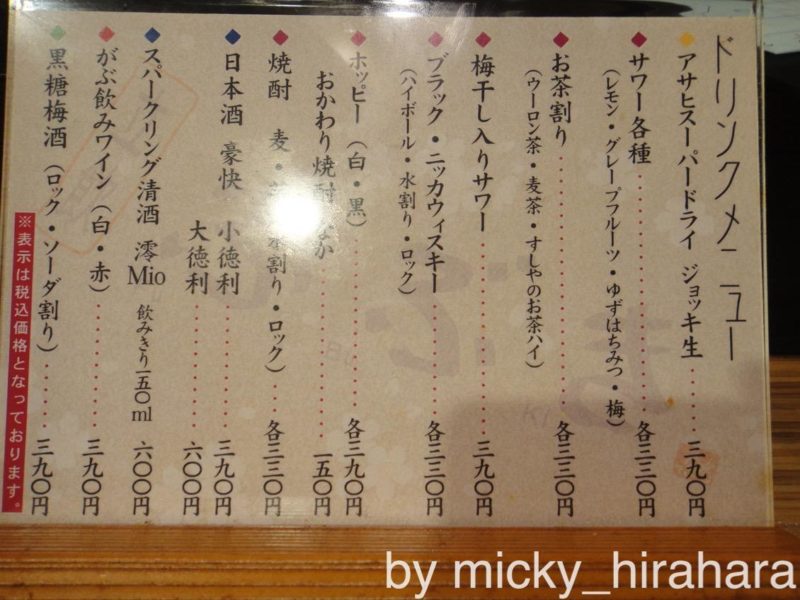 ドリンクメニュー
アサヒスーパードライ ジョッキ生 三九〇円
サワー各種 各三三〇円
（レモン・グレープフルーツ・ゆずはちみつ・梅）
お茶割り 各三三〇円
（ウーロン茶・麦茶・すしやのお茶ハイ）
梅干し入りサワー 三九〇円
ブラック・ニッカウィスキー 各三三〇円
（ハイボール・水割り・ロック）
ホッピー（白・黒） 各三九〇円
おかわり焼酎 なか 一五〇円
焼酎 麦・ 水割り・ロック） 各三三〇円
日本酒 豪快 小徳利 三九〇円
大徳利 六〇〇円
スパークリング清酒 澪 Mio 飲みきり一五〇ml 六〇〇円
がぶ飲みワイン（白・赤） 三九〇円
黒糖梅酒（ロック・ソーダ割り） 三九〇円
※表示は税込価格となっております。
by micky_hirahara